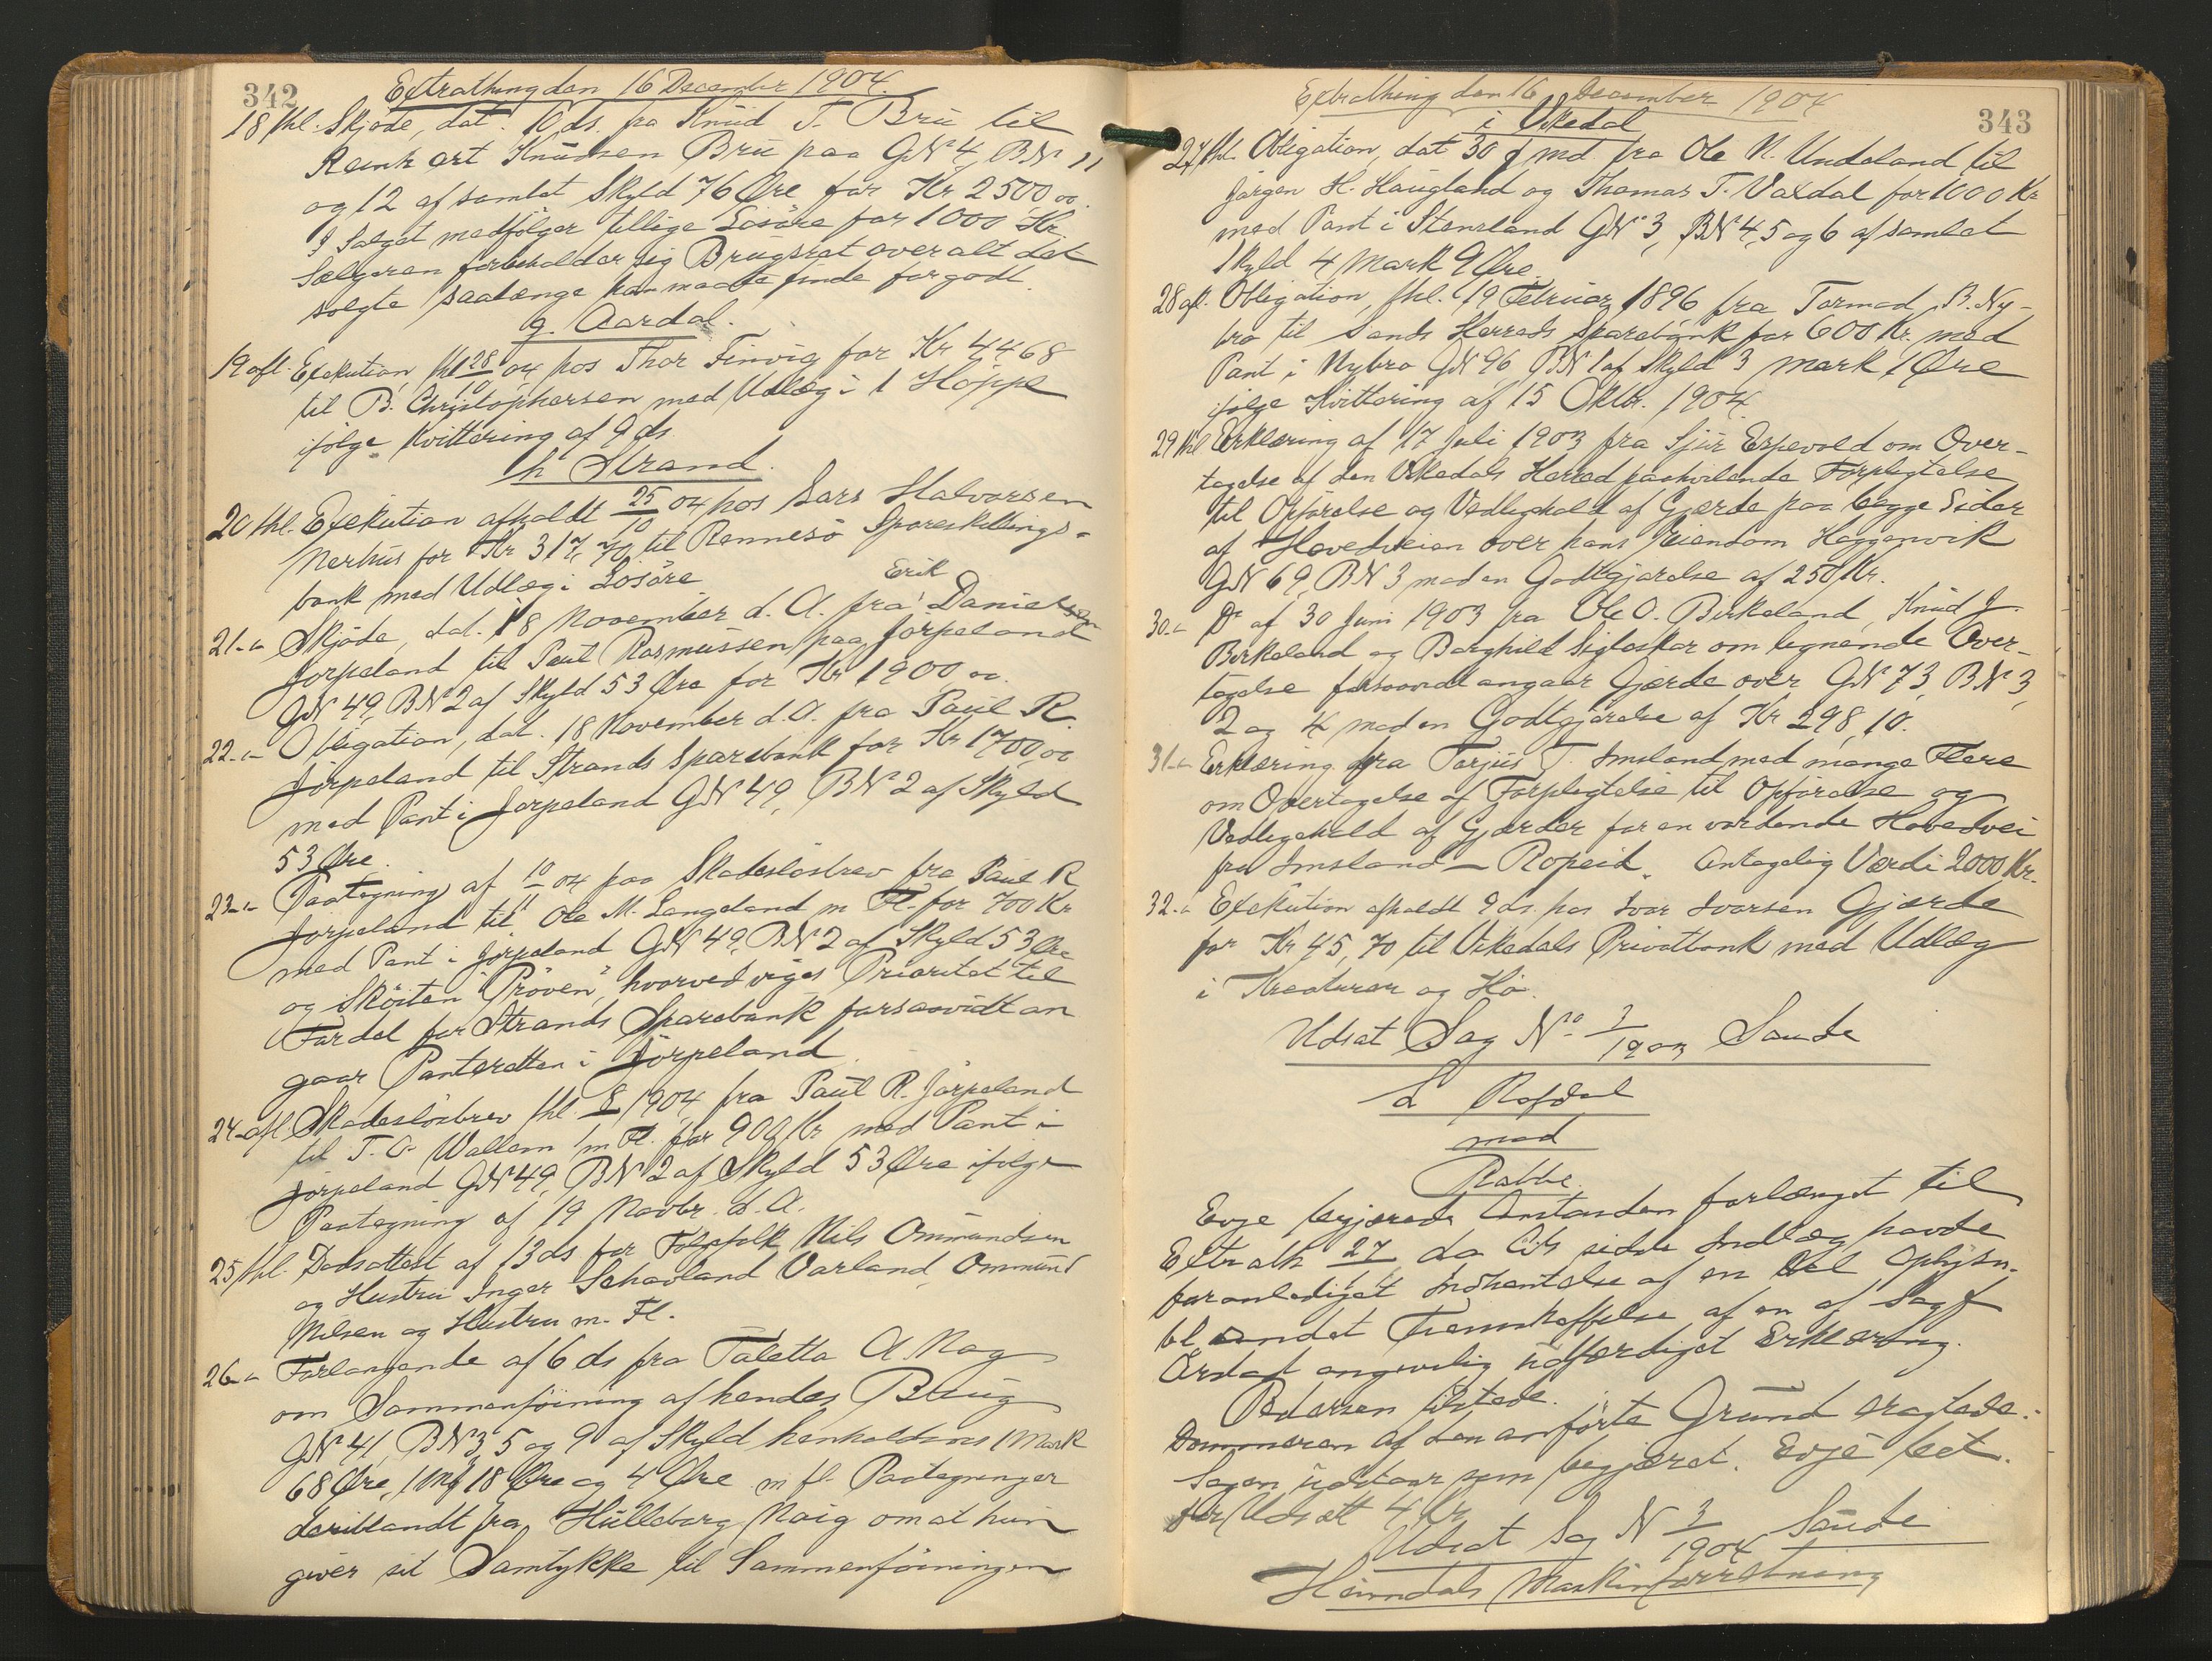 342
Extrathing den 16 December 1904.
18 thl. Skjøde, dat. 10 ds. fra Knud T. Bru til
Reinkert Knudsen Bru paa GN 4, BN 11
og 12 af samlet Skyld 76 Øre for Kr 2500 oo.
I Salget medfølger tillige Løsøre for 1000 Kr.
Sælgeren forbeholder sig Brugsret over alt det
solgte saalænge han maatte finde forgodt.
g. Aardal.
19 afl. Exekution, thl 28/10 04 hos Thor Finvig for Kr 44,68
til B. Christophersen med Udlæg i 1 Hoppe
ifølge Kvittering af 9 ds.
h Strand.
20 thl. Exekution afholdt 25/10 04 hos Lars Halvorsen
Nerhus for Kr 317,70 til Rennesø Spareskillings-
bank med Udlæg i Løsøre.
21 - " - Skjøde, dat. 18 November d. A. fra Erik Danielsen
Jørpeland til Paul Rasmussen paa Jørpeland
GN 49, BN 2 af Skyld 53 Øre for Kr 1900 oo.
22 - " - Obligation, dat. 18 November d. A. fra Paul R.
Jørpeland til Strands Sparebank for Kr 1700,oo
med Pant i Jørpeland GN 49, BN 2 af Skyld
53 Øre.
23 - " - Paategning af 10/11 04 paa Skadesløsbrev fra Paul R
Jørpeland til Ole M. Langeland m Fl. for 700 Kr
med Pant i Jørpeland GN 49, BN 2 af Skyld 53 Øre
og Skøiten "Prøven", hvorved viges Prioritet til
Fordel for Strands Sparebank forsaavidt an
gaar Panteretten i Jørpeland.
24 - afl. Skadesløsbrev thl. 1904, fra Paul R. Jørpeland
til T. O. Wallem m Fl. for 900 Kr med Pant i
Jørpeland GN 49, BN 2 af Skyld 53 Øre ifølge
Paategning af 19 Novbr. d. A.
25 thl. Dødsattest af 13 ds for Følgefolk Nils Ommundsen
og Hustru Inger Schavland Varland, Ommund
Nilsen og Hustru m. Fl.
26 - " - Forlangende af 6 ds fra Taletta A Nag
om Sammenføining af hendes Brug
GN 41, BN 3, 5 og 9 af Skyld henholdsvis 1 Mark
68 Øre, 1 Mk 18 Øre og 4 Øre m fl. Paategninger
deriblandt fra Hulleborg Naig om at hun
giver sit Samtykke til Sammenføiningen
343
Extrathing den 16 December 1904
i Vikedal
27 thl. Obligation, dat 30 f md fra Ole N. Undeland til
Jørgen H. Haugland og Thomas T. Vaxdal for 1000 Kr
med Pant i Stensland GN 3, BN 4, 5 og 6 af samlet
Skyld 4 Mark 9 Øre.
28 afl. Obligation, thl. 19 Februar 1896 fra Tormod B. Ny-
bro til Sands Herreds Sparebank for 600 Kr. med
Pant i Nybro GN 96, BN 1 af Skyld 3 Mark 1 Øre
ifølge Kvittering af 15 Oktbr. 1904.
29 thl Erklæring af 17 Juli 1903 fra Sjur Espevold om Over-
tagelse af den Vikedals Herred paahvilende Forpligtelse
til Opførelse og Vedligehold af Gjerde paa begge Sider
af Hovedveien over hans Eiendom Haggenvik
GN 69, BN 3 mod en Godtgjørelse af 250 Kr.
30 - " - Do af 30 Juni 1903 fra Ole O. Birkeland, Knud J.
Birkeland og Borghild Sigloskar om lignende Over-
tagelse forsaavidt angaar Gjerde over GN 73, BN 3,
2 og 4 mod en Godtgjørelse af Kr 298,10.
31 - " - Erklæring fra Torjus T. Imsland med mange Flere
om Overtagelse af Forpligtelse til Opførelse og
Vedligehold af Gjerder for en vordende Hovedvei
fra Imsland – Ropeid. Antagelig Værdi 2000 Kr.
32 - " Exekution afholdt 9 ds. hos Ivar Ivarsen Gjerde
for Kr 45,70 til Vikedals Privatbank med Udlæg
i Kreaturer og Hø.
Udsat Sag No 3/1903 Saude
L Rafdal
mod
Rabbe.
Evje begjærede Anstanden forlænget til
Extrath 27 da Cits sidste Indlæg havde
foranlediget Indhentelse af en Del Oplysn.
bl andet Fremskaffelse af en af Sagf
Ørstad angivelig udfærdiget Erklæring.
Pedersen tilstede.
Dommeren af den anførte Grund eragtede:
Sagen udstaar som begjæret. Evje bet.
for Udsætt 4 Kr
Udsat Sag N 3/1904 Saude
Hømdals Maskinforretning